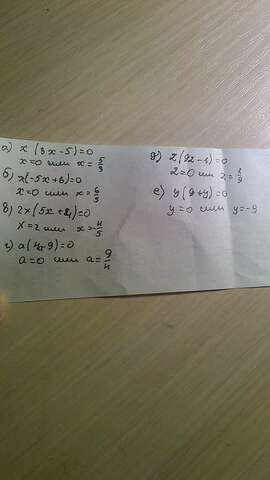 а) x (3x-5)=0
x=0 или x=5/3
б) x(-5x+6)=0
x=0 или x=6/5
в) 2x(5x+4)=0
x=2 или x=-4/5
г) a(4-9)=0
a=0 или a=9/4
д) z(9z-1)=0
z=0 или z=1/9
е) y(9+y)=0
y=0 или y=-9